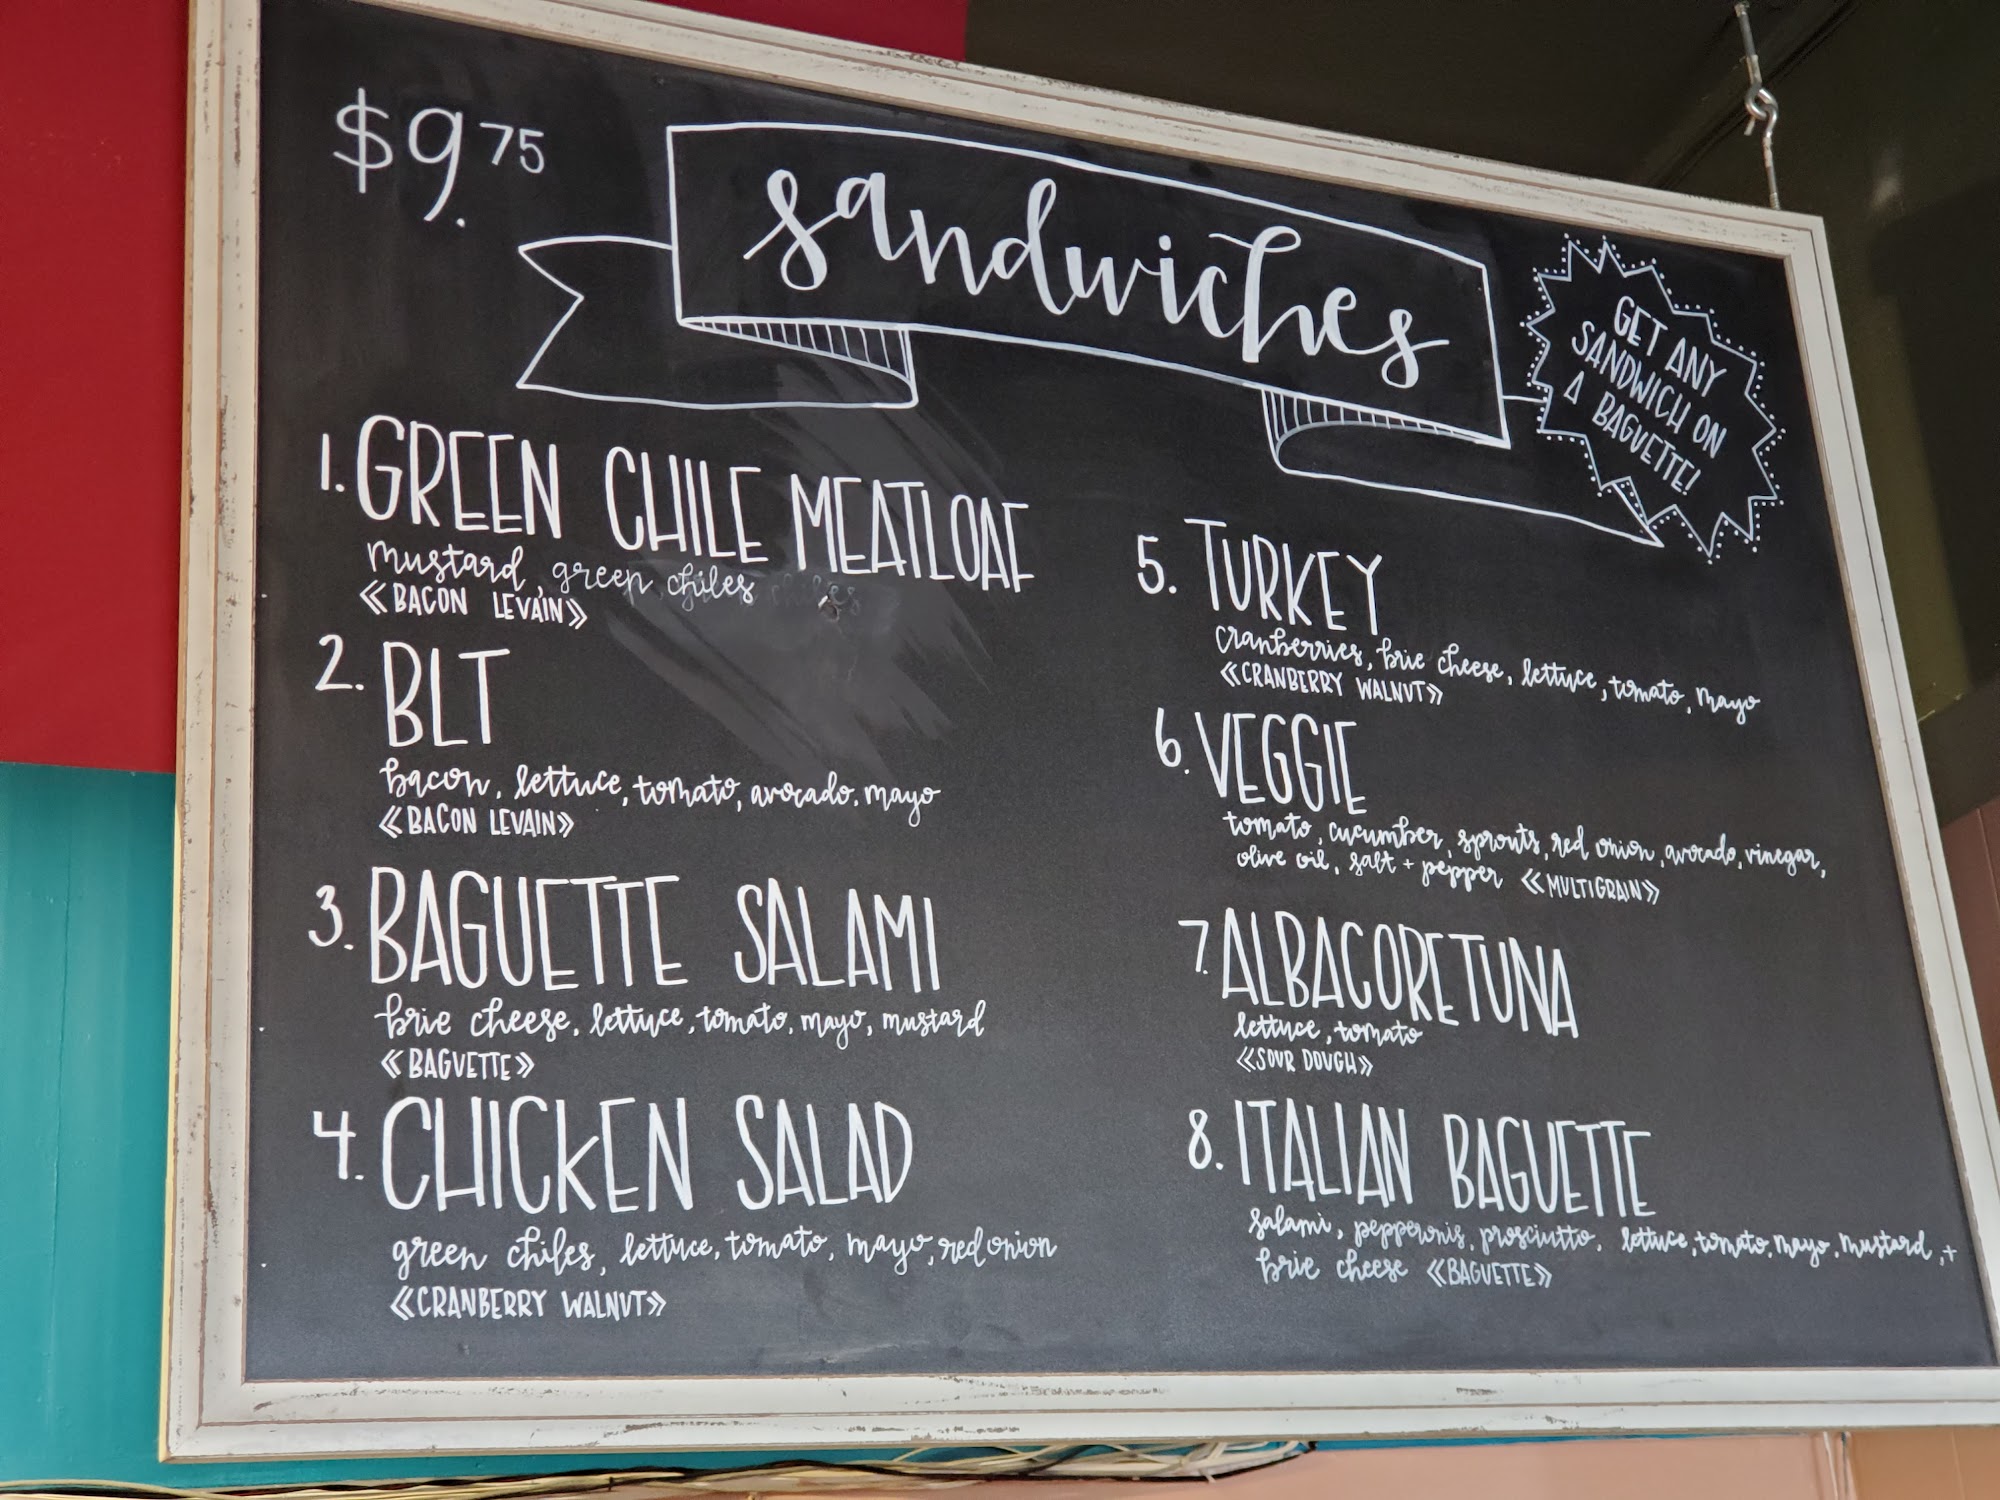 $9.75
sandwiches
GET ANY
SANDWICH ON
A BAGUETTE!
1. GREEN CHILE MEATLOAF
mustard, green chiles
«BACON LEVAIN»
2. BLT
bacon, lettuce, tomato, avocado, mayo
«BACON LEVAIN»
3. BAGUETTE SALAMI
brie cheese, lettuce, tomato, mayo, mustard
«BAGUETTE»
4. CHICKEN SALAD
green chiles, lettuce, tomato, mayo, red onion
«CRANBERRY WALNUT»
5. TURKEY
cranberries, brie cheese, lettuce, tomato, mayo
«CRANBERRY WALNUT»
6. VEGGIE
tomato, cucumber, sprouts, red onion, avocado, vinegar,
olive oil, salt + pepper «MULTIGRAIN»
7. ALBACORE TUNA
lettuce, tomato
«SOUR DOUGH»
8. ITALIAN BAGUETTE
salami, pepperonis, prosciutto, lettuce, tomato, mayo, mustard, +
brie cheese «BAGUETTE»